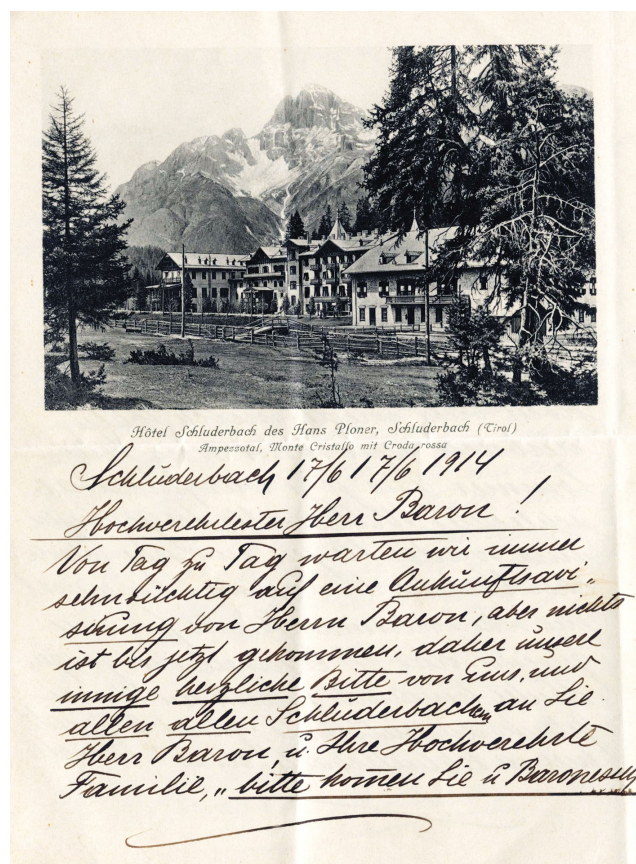 Hôtel Schluderbach des Hans Ploner, Schluderbach (Tirol)
Ampezzotal, Monte Cristallo mit Croda rossa
Schluderbach 17/6 17/6 1914
Hochverehrtester Herr Baron!
Von Tag zu Tag warten wir immer
sehnsüchtig auf eine Ankunftsavi„
sirung von Herrn Baron, aber nichts
ist bis jetzt gekommen, daher unsere
innige herzliche Bitte von uns, und
allen allen Schluderbachern an Sie
Herr Baron, u. Ihre Hochverehrte
Familie, „bitte komen Sie u Baronessen